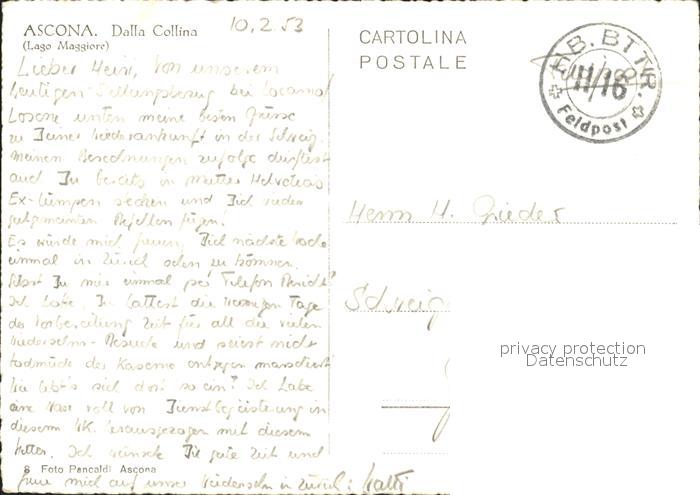 ASCONA. Dalla Collina
(Lago Maggiore)
10.2.53
CARTOLINA
POSTALE
H.B. BTTR.
II/16
Feldpost
Lieber Heiri, von unserem
heutigen Stellungsbezug bei Locarno/
Losone unten meine besten Grüsse
zu Deiner Wiederankunft in der Schweiz.
Meinen Berechnungen zufolge dürftest
auch Du bereits in Mutter Helvetias
Ex-Lumpen stecken und Dich wieder
gutgemeinten Befehlen fügen!
Es würde mich freuen, Dich nächste Woche
einmal in Zürich sehen zu können.
Gibst Du mir einmal per Telefon Bericht?
Ich habe, Du hattest die wenigen Tage
der Vorbereitung Zeit für all die vielen
Wiedersehns-Besuche und seiest nicht
todmüde der Kaserne entgegen marschiert!
Wie lebt's sich dort so ein? Ich habe
eine Nase voll von Dienstbegeisterung in
diesem WK. herausgezogen mit diesem
Wetter. Ich wünsche Dir gute Zeit und
freue mich auf unser Wiedersehn in Zürich:
Herrn H. Rieder
Schweiz
privacy protection
Datenschutz
8 Foto Pancaldi Ascona